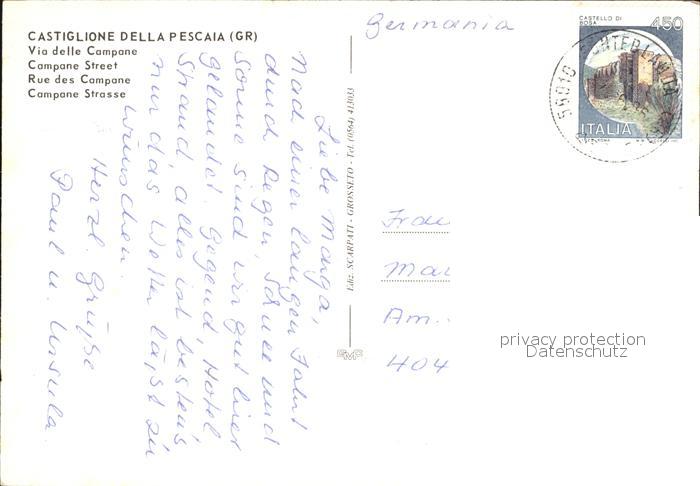 CASTIGLIONE DELLA PESCAIA (GR)
Via delle Campane
Campane Street
Rue des Campane
Campane Strasse
Liebe Marga,
Nach einer langen Fahrt
durch Regen, Schnee und
Sonne sind wir gut hier
gelandet. Gegend, Hotel,
Strand, alles ist bestens,
nur das Wetter läßt zu
wünschen.
Herzl Grüße
Paul u. Ursula
Ediz. SCARPATI - GROSSETO - Tel. (0564) 413033
Germania
CASTELLO DI
BOSA
450
ITALIA
58010 FONTEBLANDA
Frau
Mar
Am
404
privacy protection
Datenschutz